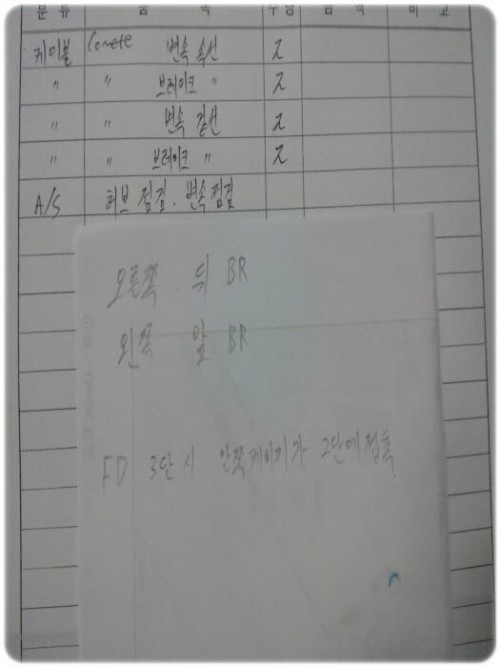 분 류 품 목 수량 금 액 비 고
케이블 Comete 변속 속선 2
" " 브레이크 " 2
" " 변속 겉선 2
" " 브레이크 " 2
A/S 허브 점검 . 변속 점검
오른쪽 뒤 BR
왼쪽 앞 BR
FD 3단 시 안쪽 케이지가 2단에 접촉